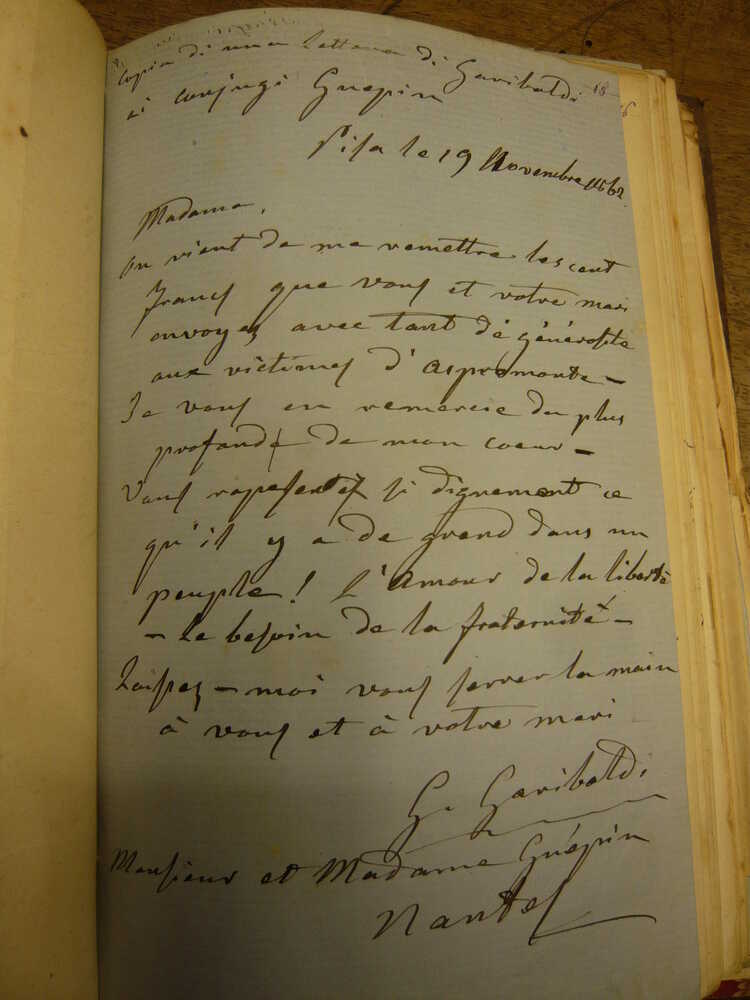 Copia di una Lettera di Garibaldi
ai conjugi Guepin
Pisa le 19 Novembre 1862
Madame,
On vient de me remettre les cent
francs que vous et votre mari
envoyez avec tant de générosite
aux victimes d'Aspromonte –
Je vous en remercie du plus
profond de mon coeur –
Vous rapesentez si dignement ce
qu'il y a de grand dans un
peuple! L'Amour de la liberté
– Le besoin de la fraternité –
Laissez-moi vous serrer la main
à vous et à votre mari
G. Garibaldi
Monsieur et Madame Guépin
Nantes